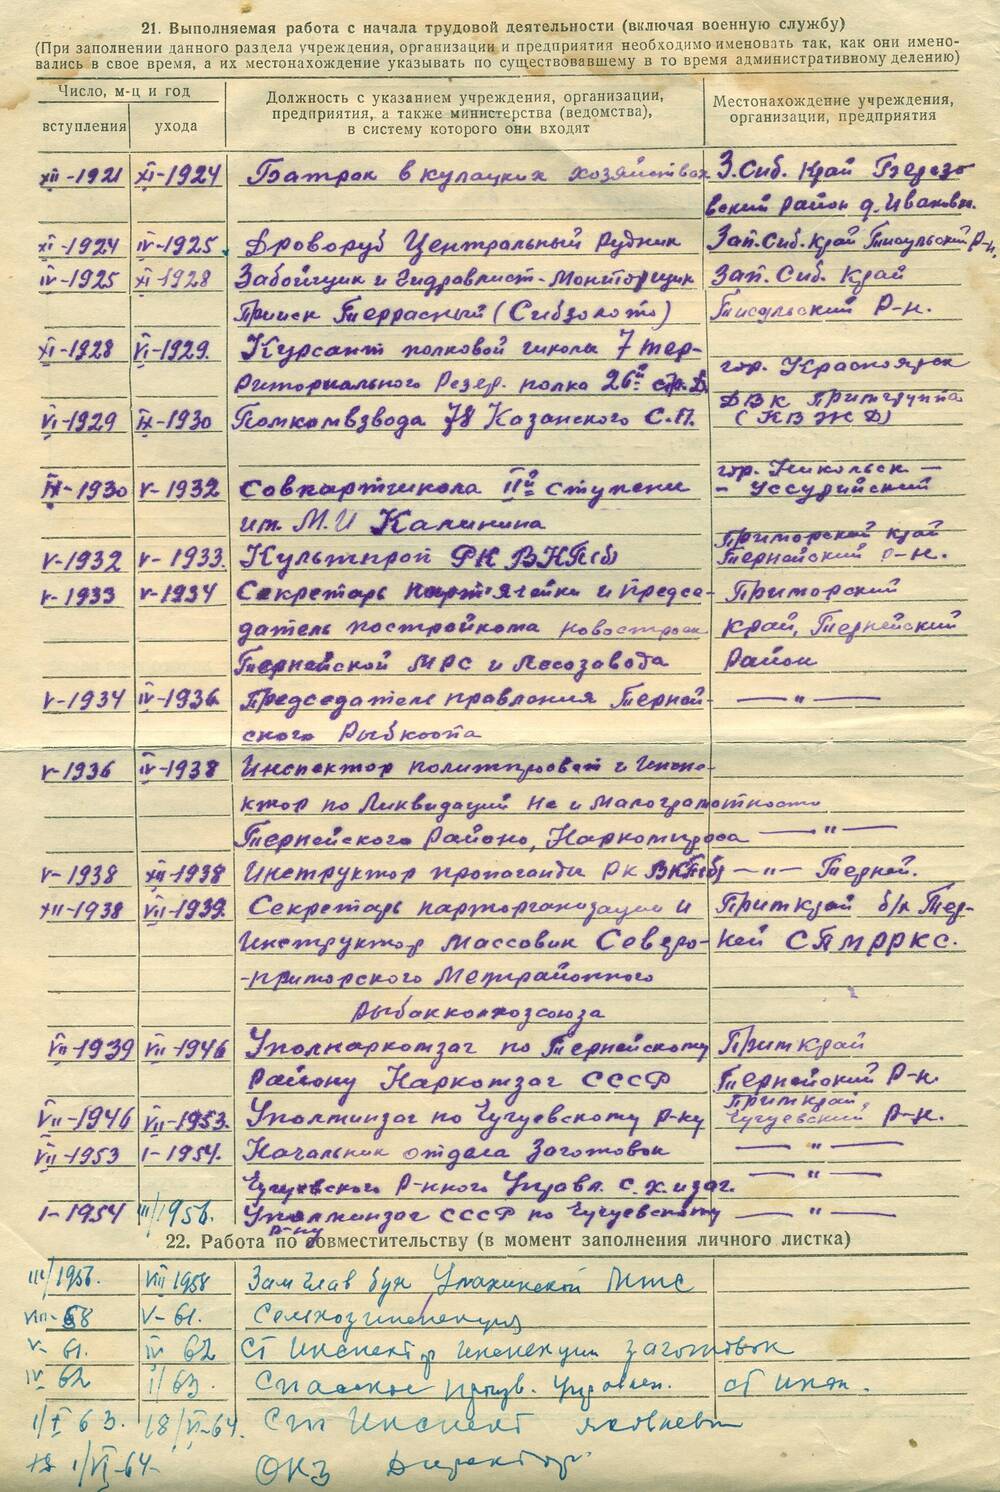 21. Выполняемая работа с начала трудовой деятельности (включая военную службу)
(При заполнении данного раздела учреждения, организации и предприятия необходимо именовать так, как они имено-
вались в свое время, а их местонахождение указывать по существовавшему в то время административному делению)
Число, м-ц и год
вступления
ухода
Должность с указанием учреждения, организации,
предприятия, а также министерства (ведомства),
в систему которого они входят
Местонахождение учреждения,
организации, предприятия
XII-1921 XI-1924 Батрак в кулацких хозяйствах З.Сиб. Край Березо
вский район д. Ивановк.
XI-1924 IV-1925 Дроворуб Центральный Рудник Зап.Сиб.край Тисульский Р-н.
IV-1925 XI-1928 Забойщик и Гидравлист-Мониторщик Зап. Сиб. Край
Прииск Террасный (Сибзолото) Тисульский Р-н.
XI-1928 VI-1929. Курсант полковой школы 7 тер-
риториального Резер. полка 26й стр.Д. гор. Красноярск
VI-1929 IX-1930 Помкомвзвода 78 Казанского С.П. ДВК Примгруппа
(КВЖД)
IX-1930 V-1932 Совпартшкола IIй ступени гор. Никольск-
-Уссурийский
им. М.И Калинина
V-1932 V-1933. Культпроп РК ВКП(б) Приморский край
Тернейский р-н.
V-1933 V-1934 Секретарь партячейки и предсе- Приморский
датель постройкома новостроек край, Тернейский
Тернейской МРС и Лесозавода Район
V-1934 IV-1936 Председатель правления Терней- — " —
ского Рыбкоопа
V-1936 IV-1938 Инспектор политпросвет и Инспе-
ктор по Ликвидаций Не и Малограмотности
Тернейского Района, Наркомпроса — " —
V-1938 XII-1938 Инструктор пропаганды РК ВКП(б) — " — Терней.
XII-1938 VII-1939. Секретарь парторганизации и Примкрай б/л Тер-
Инструктор Массовик Северо- ней СПМРРКС.
-приморского Межрайонного
Рыбакколхозсоюза
VII-1939 VII-1946 Уполнаркомзаг по Тернейскому Примкрай
Району Наркомзаг СССР Тернейский Р-н.
VII-1946 VII-1953. Уполминзаг по Чугуевскому р-ну Примкрай,
Чугуевский Р-н.
VII-1953 I-1954. Начальник отдела Заготовок — " —
Чугуевского Р-нного Управл. с.х. и заг. — " —
I-1954 III/1956. Уполминзаг СССР по Чугуевскому — " —
р-ну
22. Работа по совместительству (в момент заполнения личного листка)
III/1956. VIII 1958 Зам глав бух Мтс
VIII-58 V-61. Сельхозинспекция
V-61. IV 62 Ст Инспектор инспекции заготовок
IV 62 I/63. Спасское произв. управлен. ст инсп.
18/VI-64. Ст Инспект
1/VI-64- ОКЗ Директор